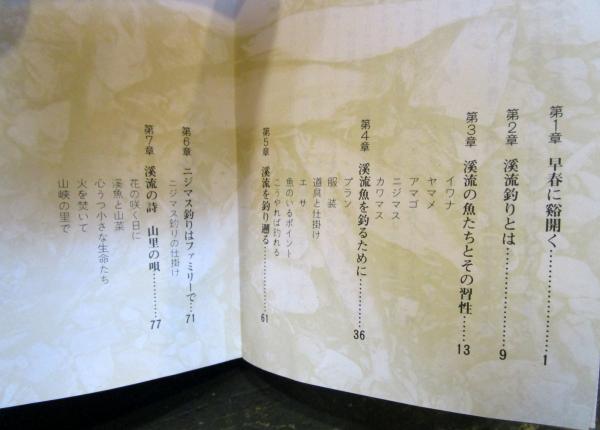 第1章 早春に谿開く…………………1
第2章 溪流釣りとは…………………9
第3章 溪流の魚たちとその習性……13
イワナ
ヤマメ
アマゴ
ニジマス
カワマス
第4章 溪流魚を釣るために…………36
プラン
服装
道具と仕掛け
エサ
魚のいるポイント
こうやれば釣れる
第5章 溪流を釣り遡る………………61
第6章 ニジマス釣りはファミリーで…71
ニジマス釣りの仕掛け
第7章 溪流の詩 山里の唄…………77
花の咲く日に
溪魚と山菜
心うつ小さな生命たち
火を焚いて
山峡の里で